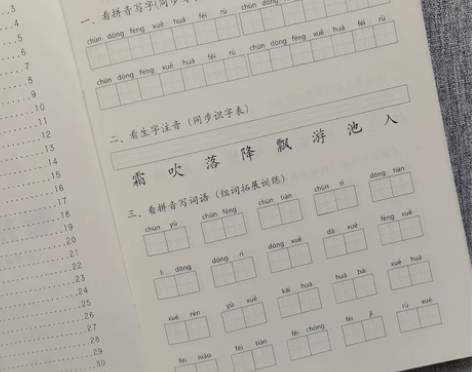 3
7
8
9
10
11
12
13
14
15
16
17
18
19
20
21
22
23
24
25
26
27
28
29
30
一、看拼音写字(同步
chūn dōng fēng xuě huā fēi rù
chūn dōng fēng xuě huā fēi rù
chūn dōng fēng xuě huā fēi rù
chūn dōng fēng xuě huā fēi rù
二、看生字注音（同步识字表）
霜 吹 落 降 飘 游 池 入
三、看拼音写词语（组词拓展训练）
chūn yǔ chūn fēng chūn tiān chūn rì dōng tiān
lì dōng dōng rì dōng xuě dà xuě fēng xuě
xuě rén yǔ xuě kāi huā huā bái xuě huā
fēi niǎo fēi tiān fēi chóng fēi jī rù xuě